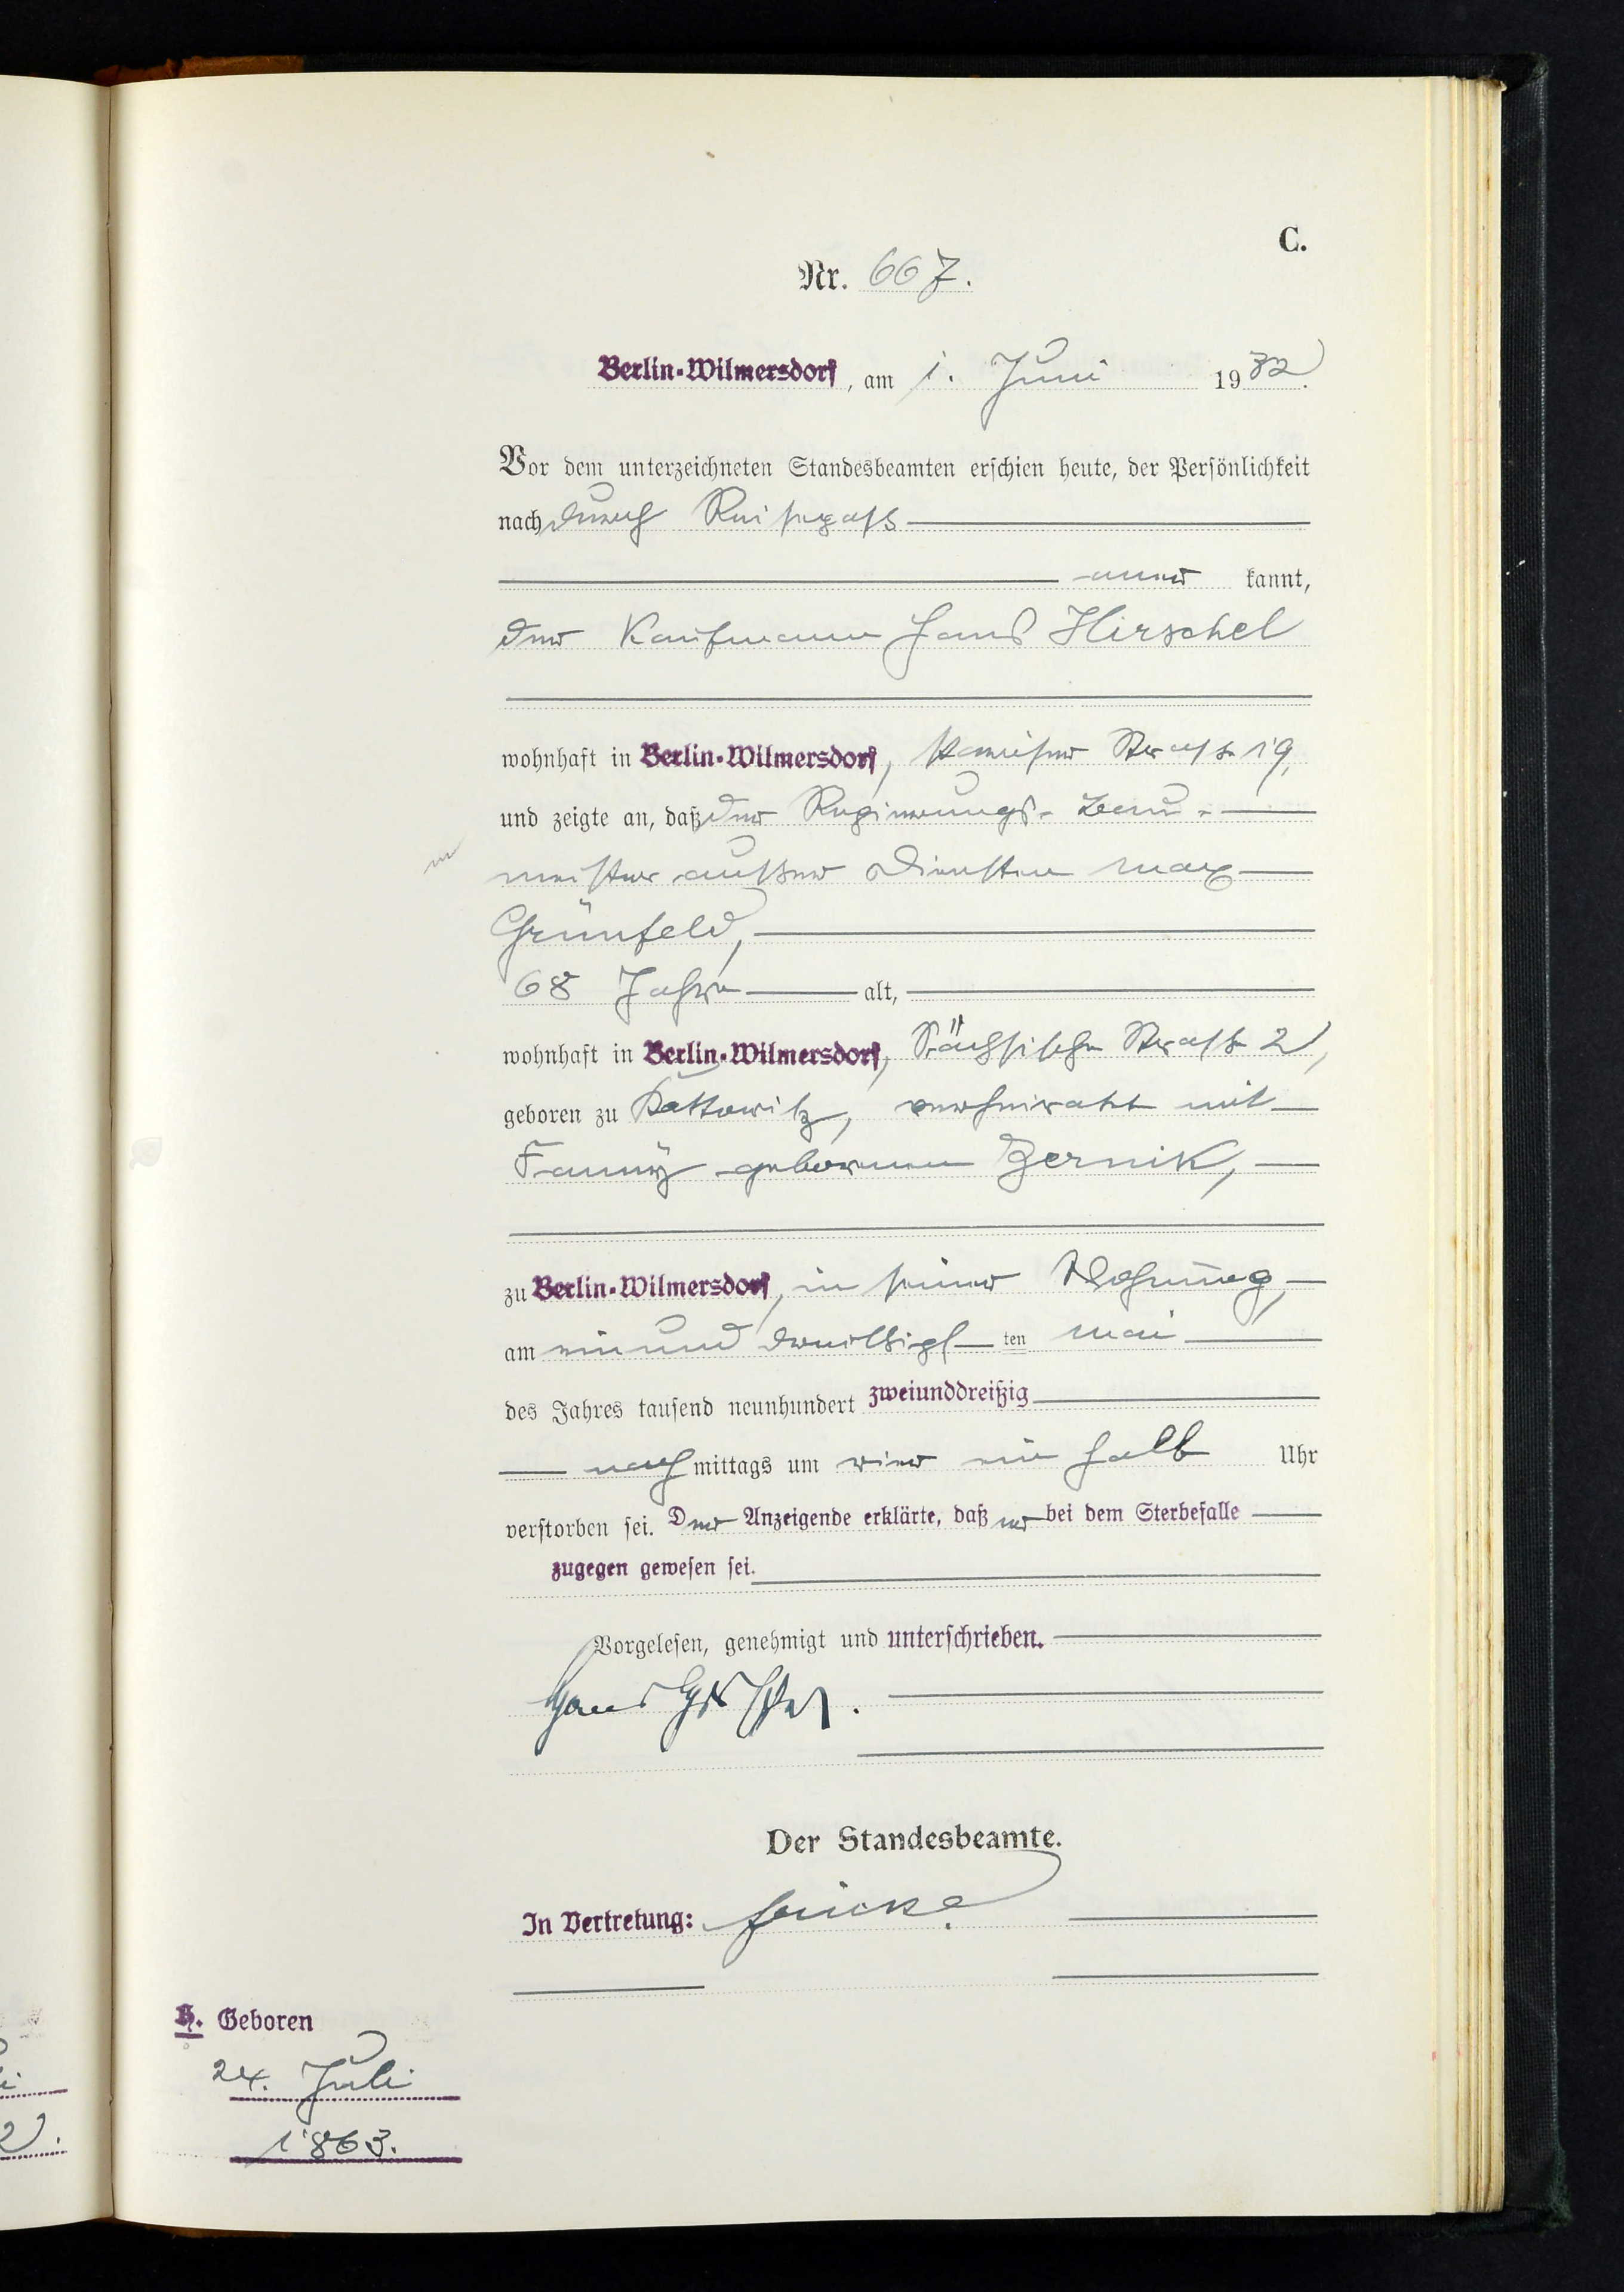 C.
Nr. 667.
Berlin-Wilmersdorf, am 1. Juni 1932.
Vor dem unterzeichneten Standesbeamten erschien heute, der Persönlichkeit
nach durch Reisepass
aner kannt,
der Kaufmann Hans Hirschel
wohnhaft in Berlin-Wilmersdorf, Straße 19,
und zeigte an, daß der Regierungs-Bau-
meister außer Diensten Max
Grünfeld,
68 Jahre alt,
wohnhaft in Berlin-Wilmersdorf, Sächsische Straße 2,
geboren zu Kattowitz, verheiratet mit
Fanny geborenen Zernik,
zu Berlin-Wilmersdorf, in seiner Wohnung,
am einunddreißigs ten Mai
des Jahres tausend neunhundert zweiunddreißig
nach mittags um vier ein halb Uhr
verstorben sei. Der Anzeigende erklärte, daß er bei dem Sterbefalle
zugegen gewesen sei.
Vorgelesen, genehmigt und unterschrieben.
Hans Hirschel.
Der Standesbeamte.
In Vertretung:
H. Geboren
24. Juli
1863.